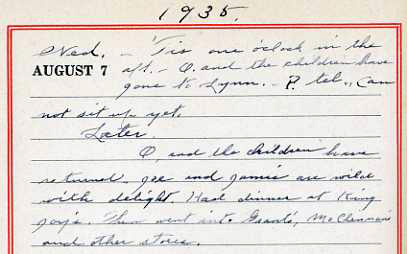 1935.
Wed. - 'Tis one o'clock in the
AUGUST 7 aft. - O. and the children have
gone to Lynn. - P. tel., Can
not sit up yet.
Later.
O, and the children have
returned. Gee and Jamie are wild
with delight. Had dinner at King
Joy's. Then went into Grant's, McClennan's
and other stores.